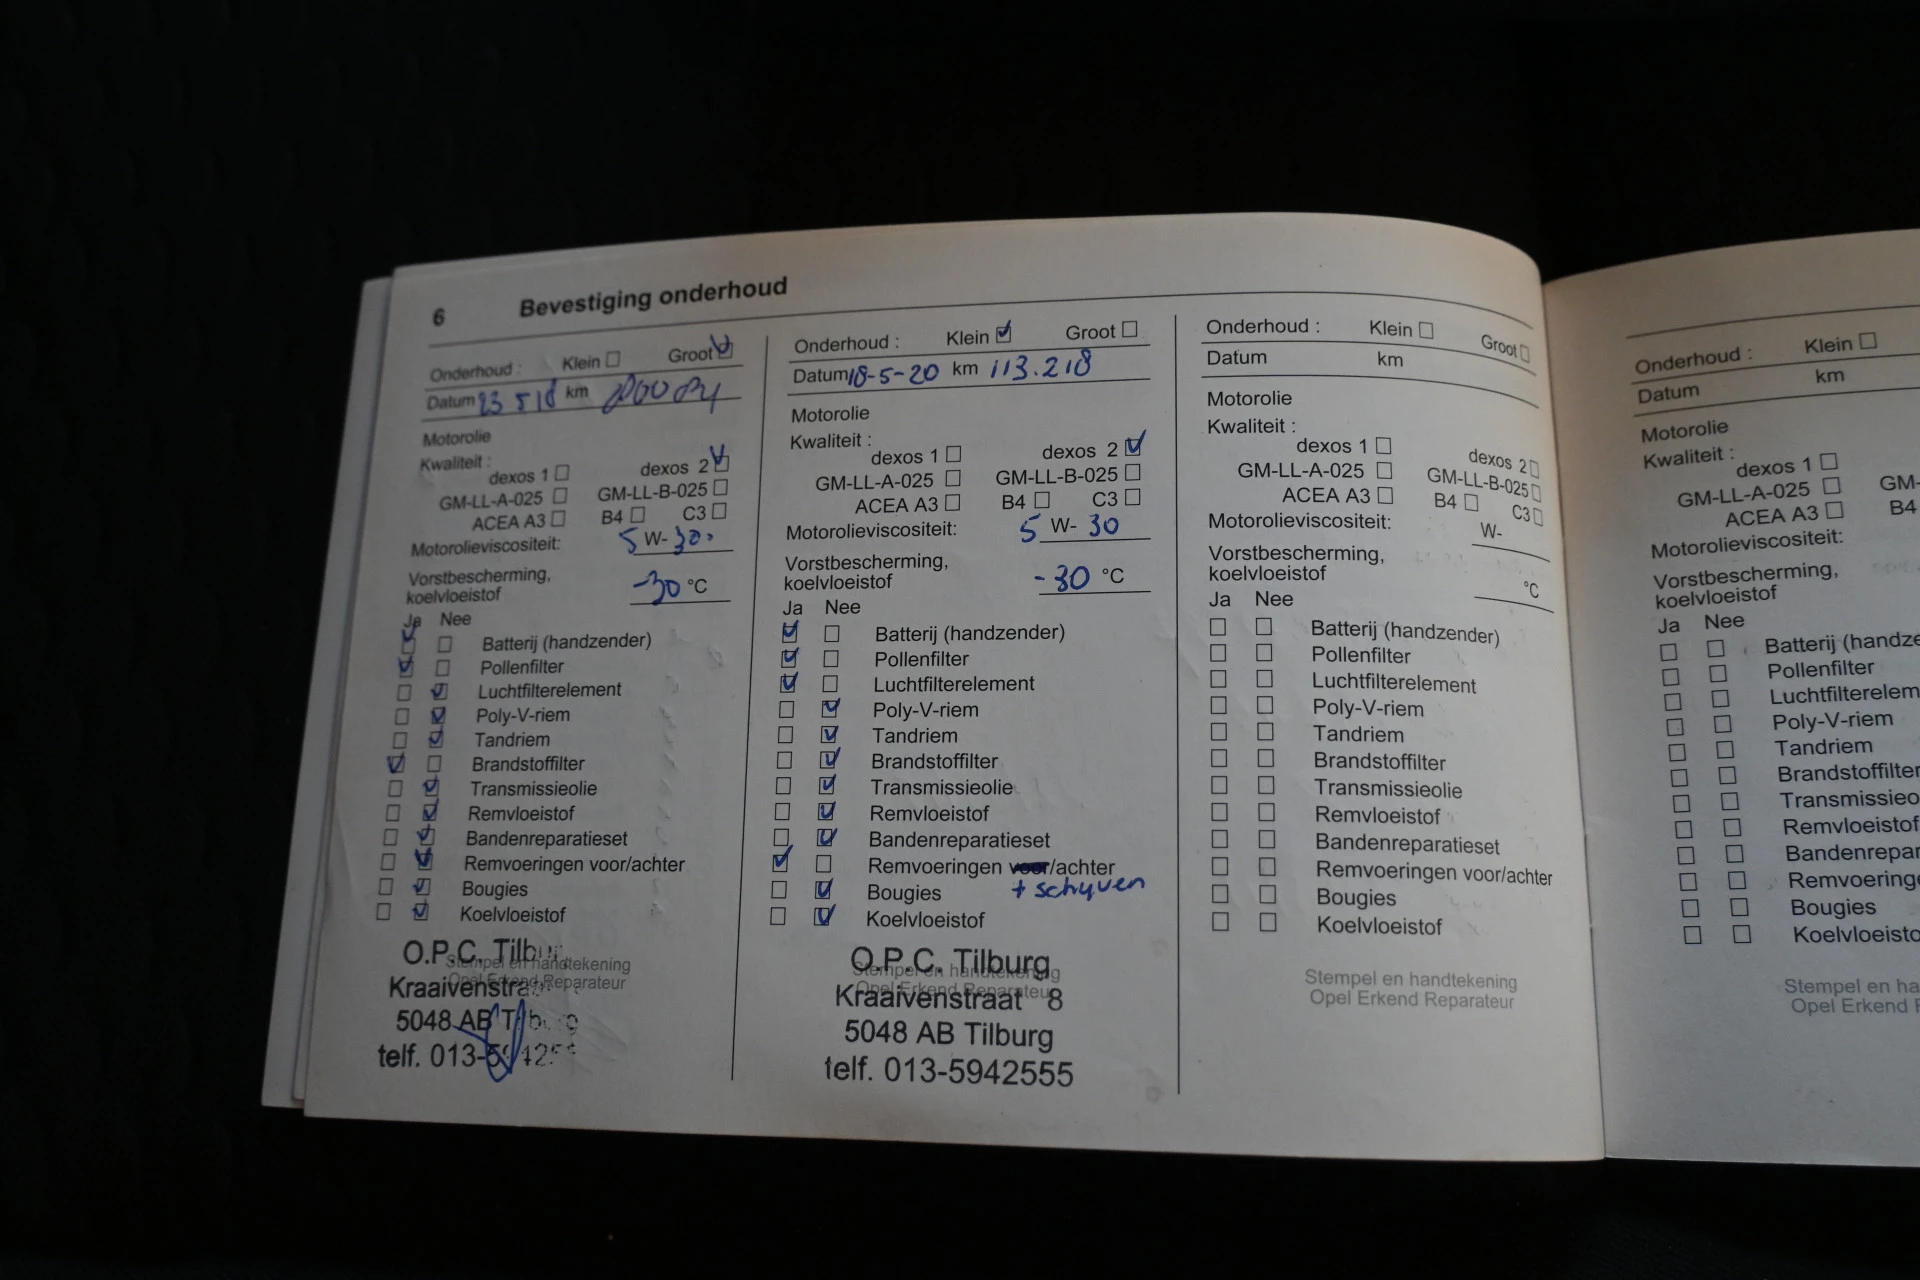 6 Bevestiging onderhoud
Onderhoud : Klein Groot
Datum 23 5 18 km
Motorolie
Kwaliteit :
dexos 1 dexos 2
GM-LL-A-025 GM-LL-B-025
ACEA A3 B4 C3
Motorolieviscositeit: 5 W- 30
Vorstbescherming,
koelvloeistof -30 °C
Ja Nee
Batterij (handzender)
Pollenfilter
Luchtfilterelement
Poly-V-riem
Tandriem
Brandstoffilter
Transmissieolie
Remvloeistof
Bandenreparatieset
Remvoeringen voor/achter
Bougies
Koelvloeistof
Stempel en handtekening
Opel Erkend Reparateur
O.P.C. Tilbu
Kraaivenstra
5048 AB Tilburg
telf. 013-594255
Onderhoud : Klein Groot
Datum 18-5-20 km 113.218
Motorolie
Kwaliteit :
dexos 1 dexos 2
GM-LL-A-025 GM-LL-B-025
ACEA A3 B4 C3
Motorolieviscositeit: 5 W- 30
Vorstbescherming,
koelvloeistof -30 °C
Ja Nee
Batterij (handzender)
Pollenfilter
Luchtfilterelement
Poly-V-riem
Tandriem
Brandstoffilter
Transmissieolie
Remvloeistof
Bandenreparatieset
Remvoeringen voor/achter
+ schyven
Bougies
Koelvloeistof
Stempel en handtekening
Opel Erkend Reparateur
O.P.C. Tilburg
Kraaivenstraat 8
5048 AB Tilburg
telf. 013-5942555
Onderhoud : Klein Groot
Datum km
Motorolie
Kwaliteit :
dexos 1 dexos 2
GM-LL-A-025 GM-LL-B-025
ACEA A3 B4 C3
Motorolieviscositeit: W-
Vorstbescherming,
koelvloeistof °C
Ja Nee
Batterij (handzender)
Pollenfilter
Luchtfilterelement
Poly-V-riem
Tandriem
Brandstoffilter
Transmissieolie
Remvloeistof
Bandenreparatieset
Remvoeringen voor/achter
Bougies
Koelvloeistof
Stempel en handtekening
Opel Erkend Reparateur
Onderhoud : Klein
Datum km
Motorolie
Kwaliteit :
dexos 1
GM-LL-A-025 GM-
ACEA A3 B4
Motorolieviscositeit:
Vorstbescherming,
koelvloeistof
Ja Nee
Batterij (handze
Pollenfilter
Luchtfilterelem
Poly-V-riem
Tandriem
Brandstoffilter
Transmissieo
Remvloeistof
Bandenrepar
Remvoeringe
Bougies
Koelvloeisto
Stempel en ha
Opel Erkend R